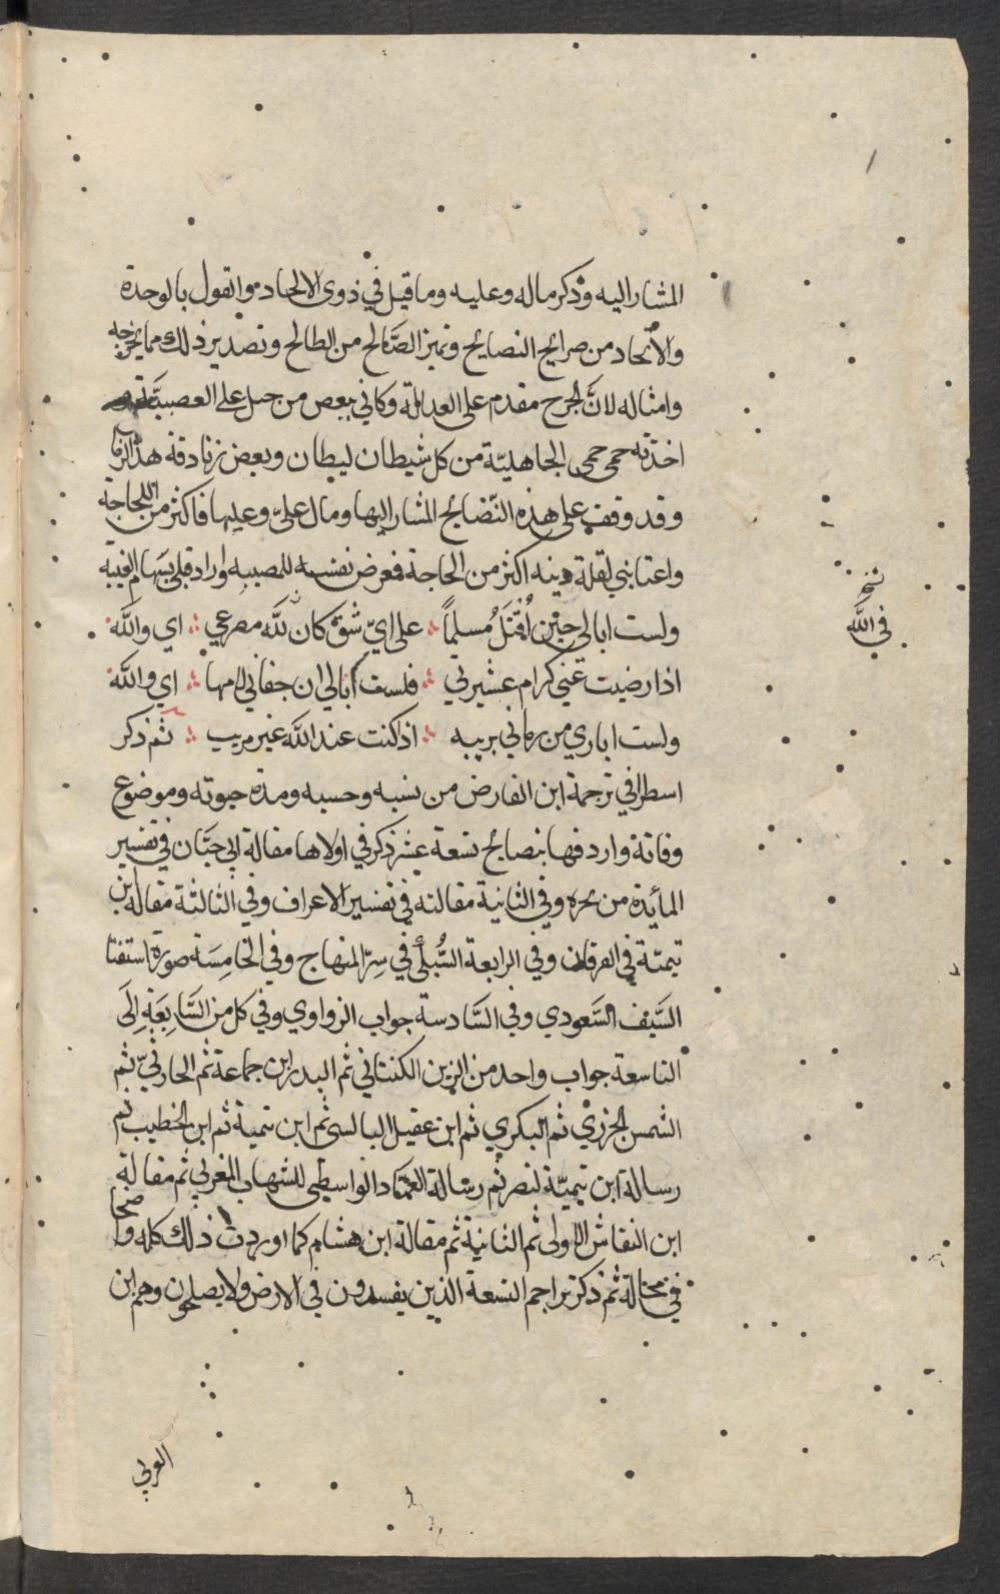 المشار اليه وذكر ماله وعليه وما قيل في ذوى الالحاد والقول بالوحدة
والاتحاد من صرايح النصايح وتميز الصالح من الطالح وتصدير ذلك مما يخرجه
وامثاله لان الجرح مقدم على العدالة وكاني ببعض من جبل على العصبية
اخذته حمى حمى الجاهلية من كل شيطان ليطان وبعض زنادقة هذا الزمان
وقد وقف على هذه النصايح المشار اليها ومال علي وعليها فاكثر من اللجاجة
واعتابني لقلة دينه اكثر من الحاجة فعرض نفسه للمصيبه واراد قلبي بسهام الغيبة
ولست ابالي حين اقتل مسلماً على اي شق كان لله مصرعي اي والله
اذا رضيت عني كرام عشيرتي فلست ابالي ان جفاني لامها اي والله
ولست اباري من رماني بريبه اذ كنت عند الله غير مريب ثم ذكر
اسطرا في ترجمة ابن الفارض من نسبه وحسبه ومدة حيوته وموضوع
وفاته واردفها بنصايح تسعة عشر ذكر في اولاها مقالة ابي حيان في تفسير
المائدة من بحره وفي الثانية مقالته في تفسير الاعراف وفي الثالثة مقالة ابن
تيمية في الفرقان وفي الرابعة السبكي في سر المنهاج وفي الخامسة صورة استفتا
السيف السعودي وفي السادسة جواب الزواوي وفي كل من السابعة الى
التاسعة جواب واحد من الزين الكتناني ثم البدر ابن جماعة ثم الحارثي ثم
الشمس الجزري ثم البكري ثم ابن عقيل البالسي ثم ابن تيمية ثم ابن الخطيب ثم
رسالة ابن تيمية لنصر ثم رسالة العماد الواسطي للشهاب المغربي ثم مقالة
ابن النقاش الاولى ثم الثانية ثم مقالة ابن هشام كما اوردت ذلك كله واضحا
في محاله ثم ذكر تراجم التسعة الذين يفسدون في الارض ولا يصلحون وهم ابن
العربي
نسخ
في الله